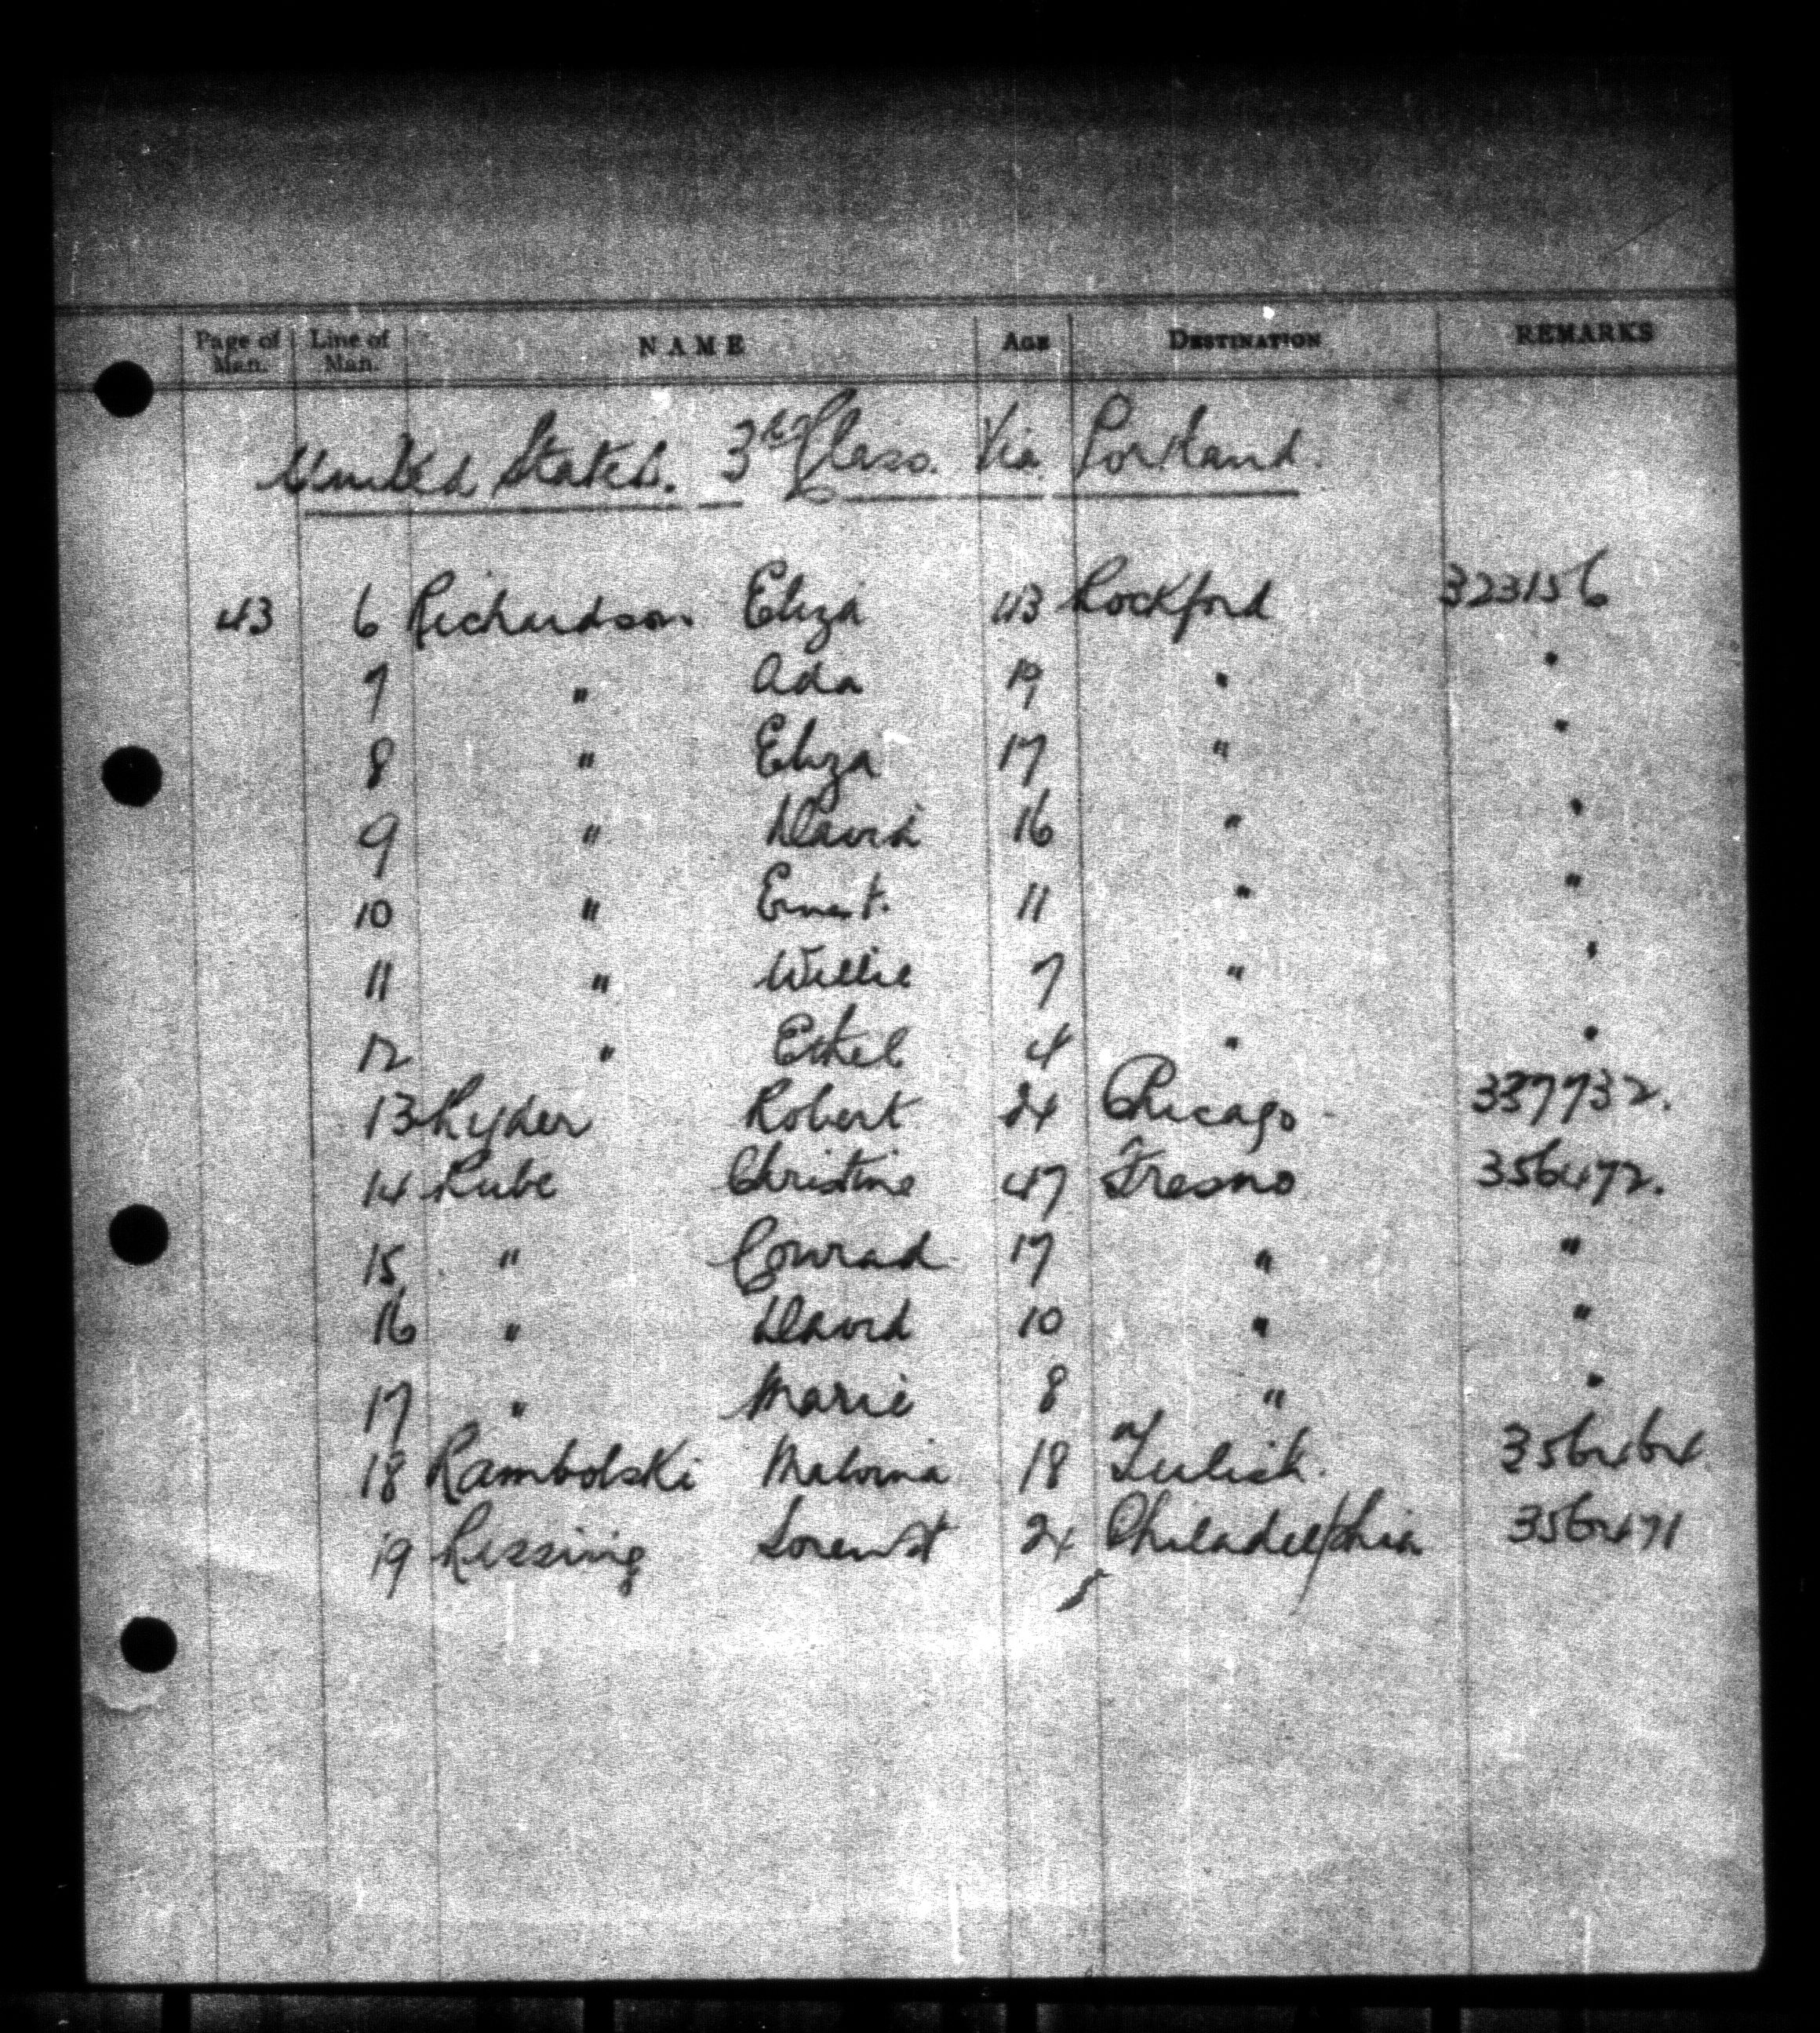 Page of Man. Line of Man. NAME AGE DESTINATION REMARKS
United States. 3rd Class. Via Portland.
43 6 Richardson Eliza 43 Rockford 323156
7 " Ada 19 " "
8 " Eliza 17 " "
9 " David 16 " "
10 " Ernest. 11 " "
11 " Willie 7 " "
12 " Ethel 4 " "
13 Ryder Robert 24 Chicago 337732.
14 Rube Christine 47 Fresno 356472.
15 " Conrad 17 " "
16 " David 10 " "
17 " Marie 8 " "
18 Rambolski Malvina 18 356464.
19 Rissing 24 Philadelphia 356471